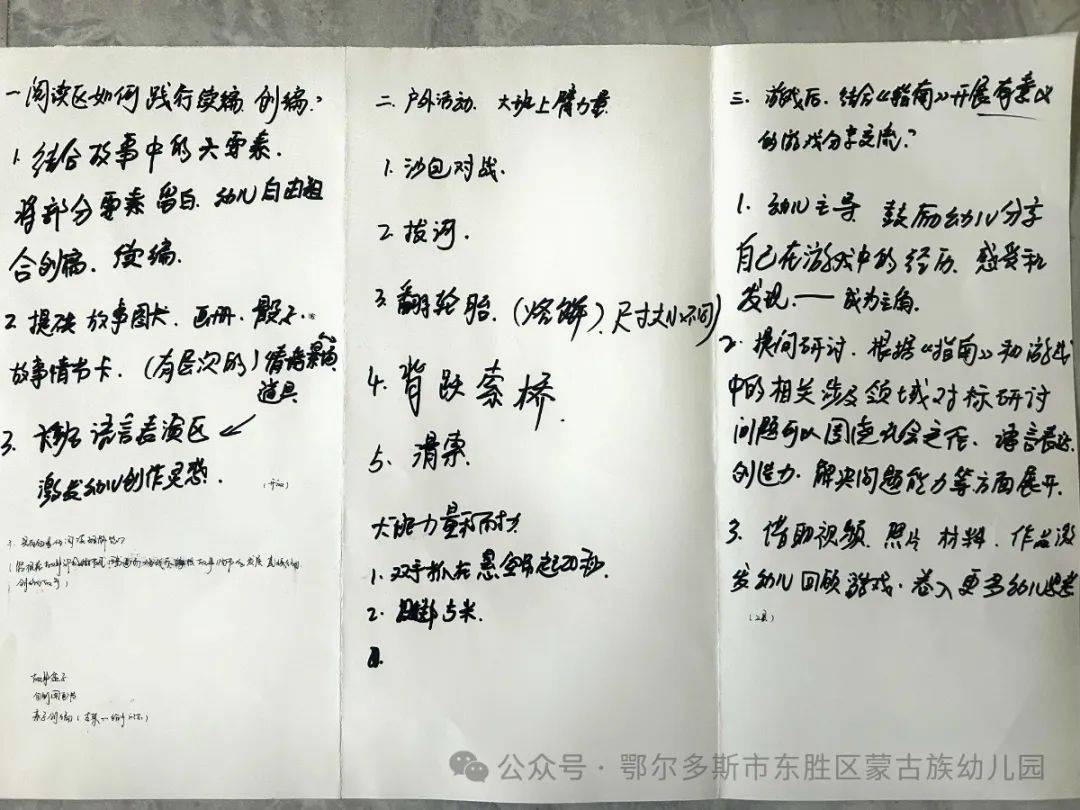 一 阅读区如何践行续编 创编?
1. 结合故事中的六要素.
将部分要素留白. 幼儿自由组
合创编. 续编.
2. 提供故事图卡. 画册. 骰子.
故事情节卡. (有层次的) 情境
道具
3. 语言表演区
激发幼儿创作灵感.
自制图书
亲子创编
二. 户外活动. 大班上臂力量
1. 沙包对战.
2. 拔河.
3. 翻轮胎. (烙饼) 尺寸大小不同
4. 背跃索桥.
5. 滑索.
大班力量和耐力
1. 双手抓杠悬空吊起20秒.
2. 5米.
三. 游戏后. 结合《指南》开展有意义
的游戏分享交流?
1. 幼儿主导 鼓励幼儿分享
自己在游戏中的经历. 感受和
发现. —— 成为主角.
2. 提问研讨. 根据《指南》和游戏
中的相关涉及领域对标研讨
问题可以围绕社会交往. 语言表达.
创造力. 解决问题能力等方面展开.
3. 借助视频. 照片 材料. 作品激
发幼儿回顾游戏. 卷入更多幼儿思考
公众号 · 鄂尔多斯市东胜区蒙古族幼儿园